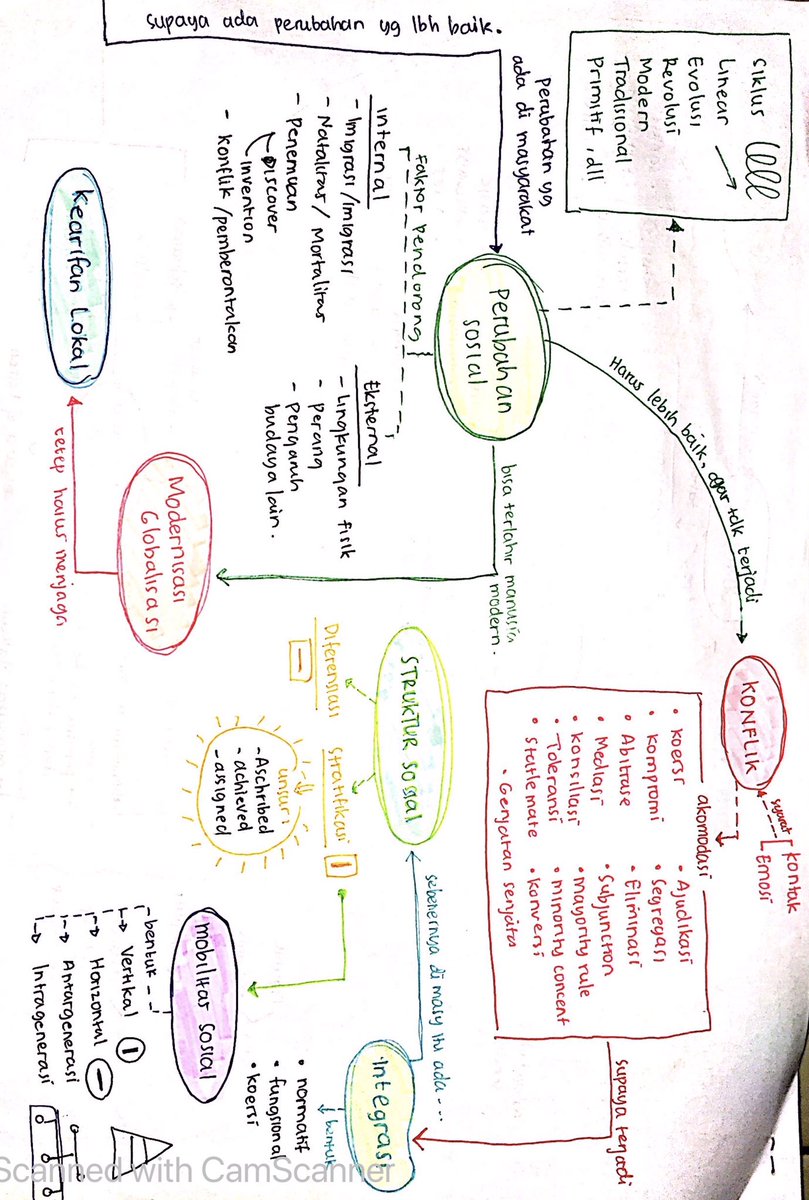 supaya ada perubahan yg lbh baik.
perubahan yg
ada di masyarakat
Siklus
Linear
Evolusi
Revolusi
Modern
Tradisional
Primitif, dll
perubahan
sosial
Faktor Pendorong
Internal
- Imigrasi/imigrasi
- Natalitas/Mortalitas
- Penemuan
Discover
invention
- Konflik/pemberontakan
Eksternal
- Lingkungan fisik
- perang
- pengaruh
budaya lain.
Harus lebih baik, agar tdk terjadi
bisa terlahir manusia
modern.
Modernisasi
Globalisasi
tetep harus menjaga
Kearifan Lokal
KONFLIK
syarat
Kontak
Emosi
akomodasi
• Koersi
• Kompromi
• Abitrase
• Mediasi
• Konsiliasi
• Toleransi
• Statlemate
• Genjatan senjata
• Ajudikasi
• Segregasi
• Eliminasi
• Subjunction
• Mayority rule
• minority concent
• Konversi
supaya terjadi
Integrasi
bentuk
• normatif
• fungsional
• koersi
sebenernya di masy itu ada ...
STRUKTUR SOSIAL
Diferensiasi
Stratifikasi
unsur:
- Aschribed
- achieved
- assigned
mobilitas sosial
bentuk
Vertikal
Horizontal
Antargenerasi
Intragenerasi
Scanned with CamScanner